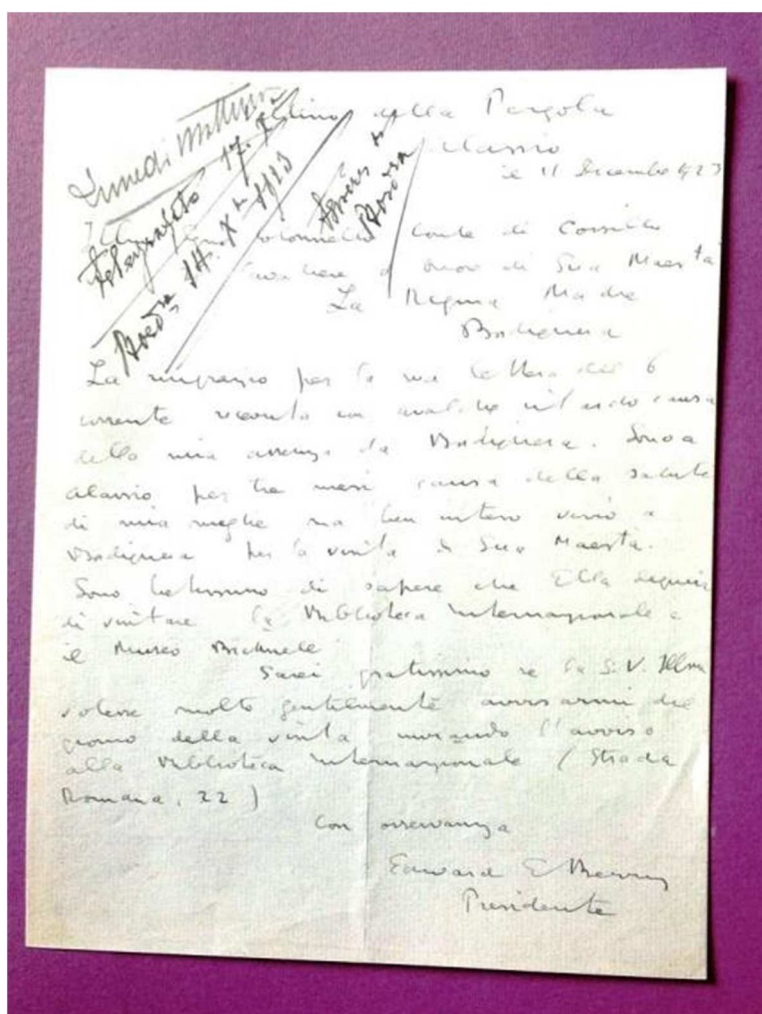 Lunedi Mattina
telegrafato 17. X
Bord.ra 14. Xre 1923
Bordra
della Pergola
Alassio
il 11 Decembre 1923
Ill
Colonnello Conte di
Cavaliere d'onore di Sua Maestà
La Regina Madre
Bordighera
La ringrazio per la sua lettera del 6
corrente ricevuta con qualche ritardo causa
della mia assenza da Bordighera. Sono a
Alassio per tre mesi causa della salute
di mia moglie ma ben inteso verrò a
Bordighera per la visita di Sua Maestà.
Sono lietissimo di sapere che Ella
di visitare la Biblioteca Internazionale e
il Museo Bicknell
Sarei gratissimo se la S.V. Illma
volesse molto gentilmente avvisarmi del
giorno della visita l'avviso
alla Biblioteca Internazionale (Strada
Romana, 22)
Con osservanza
Edward E Berry
Presidente